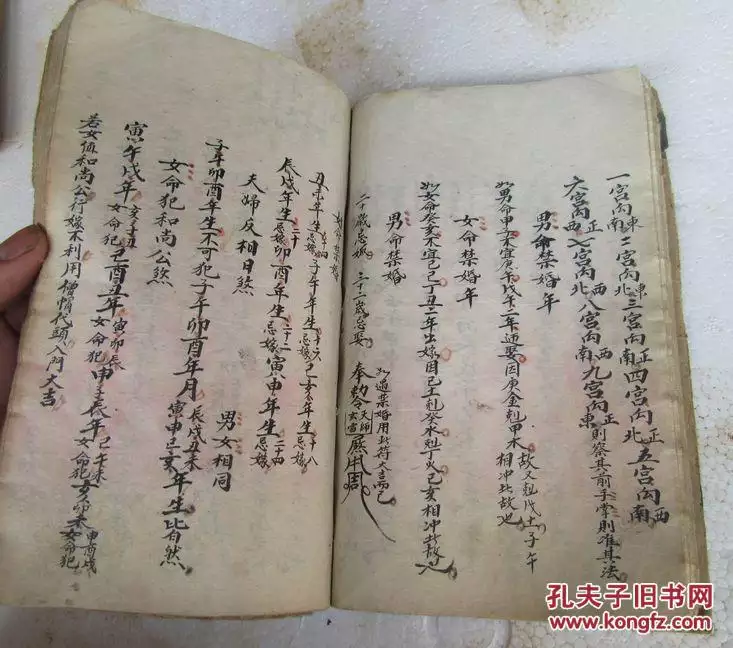 一宫向東南二宫向東北三宫向正南四宫向正北五宫向西南
六宫向正西七宫向西北八宫向西南九宫向正東則察其前手掌則准其法
男命禁婚年
如男命甲子不宜庚午戊午二年迎娶因庚金剋甲木故又剋戊土子午相冲此故也
女命禁婚年
如女命癸亥不宜己巳丁丑二年出嫁因己土剋癸水剋丁火己亥相冲此故也
男命禁婚
二十歲忌嫁 三十一歲忌娶
如遇禁婚用此符大吉而已
奉勅令
丑未年生忌嫁子午年生十六忌嫁己亥年生十八忌嫁
辰戌年生二十忌嫁卯酉年生二十二忌嫁寅申年生二十四忌嫁
夫婦反相日煞 男女相同
子午卯酉年生不可犯子午卯酉年月辰戌丑未寅申己亥年生比自然
女命犯和尚公煞
寅午戌年亥子丑女命犯己酉丑年寅卯辰女命犯申子辰年己午未女命犯亥卯未申酉戌女命犯
若女值和尚公行嫁不利用僧帽代頭入門大吉
孔夫子旧书网
www.kongfz.com